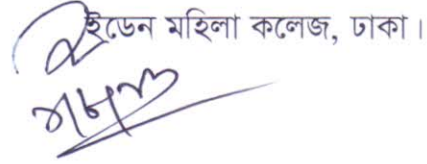 ইডেন মহিলা কলেজ, ঢাকা।